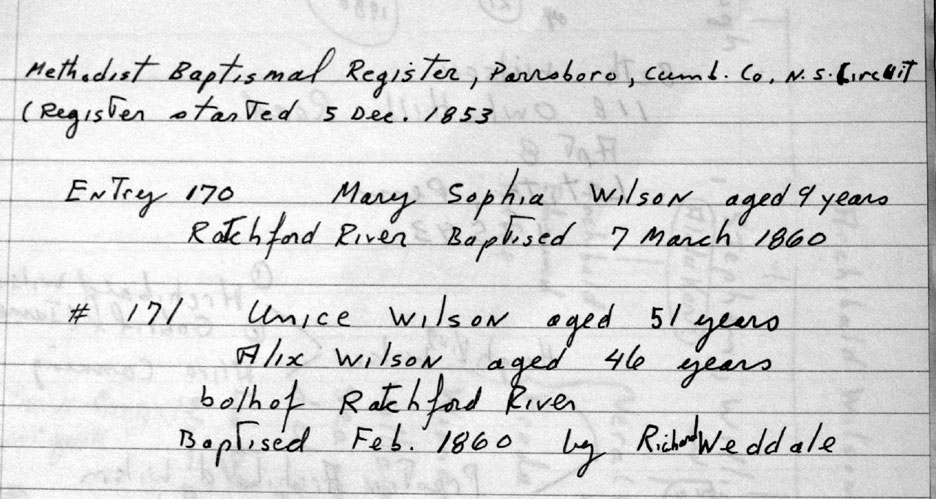 Methodist Baptismal Register, Parrsboro, Cumb. Co, N.S. Circuit
(Register started 5 Dec. 1853
Entry 170 Mary Sophia Wilson aged 9 years
Ratchford River Baptised 7 March 1860
# 171 Unice Wilson aged 51 years
Alix Wilson aged 46 years
both of Ratchford River
Baptised Feb. 1860 by Richard Weddale